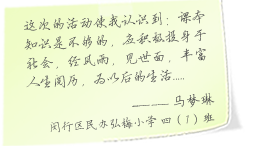 这次的活动使我认识到：课本
知识是不够的，应积极投身于
社会，经风雨，见世面，丰富
人生阅历，为以后的生活.....
———马梦琳
闵行区民办弘梅小学四（1）班